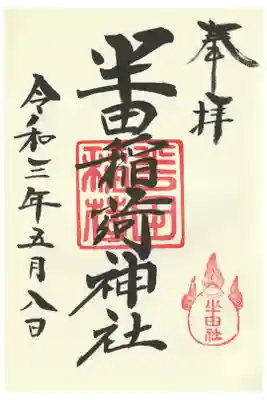 奉拝
半田稲荷神社
令和三年五月八日
半田社